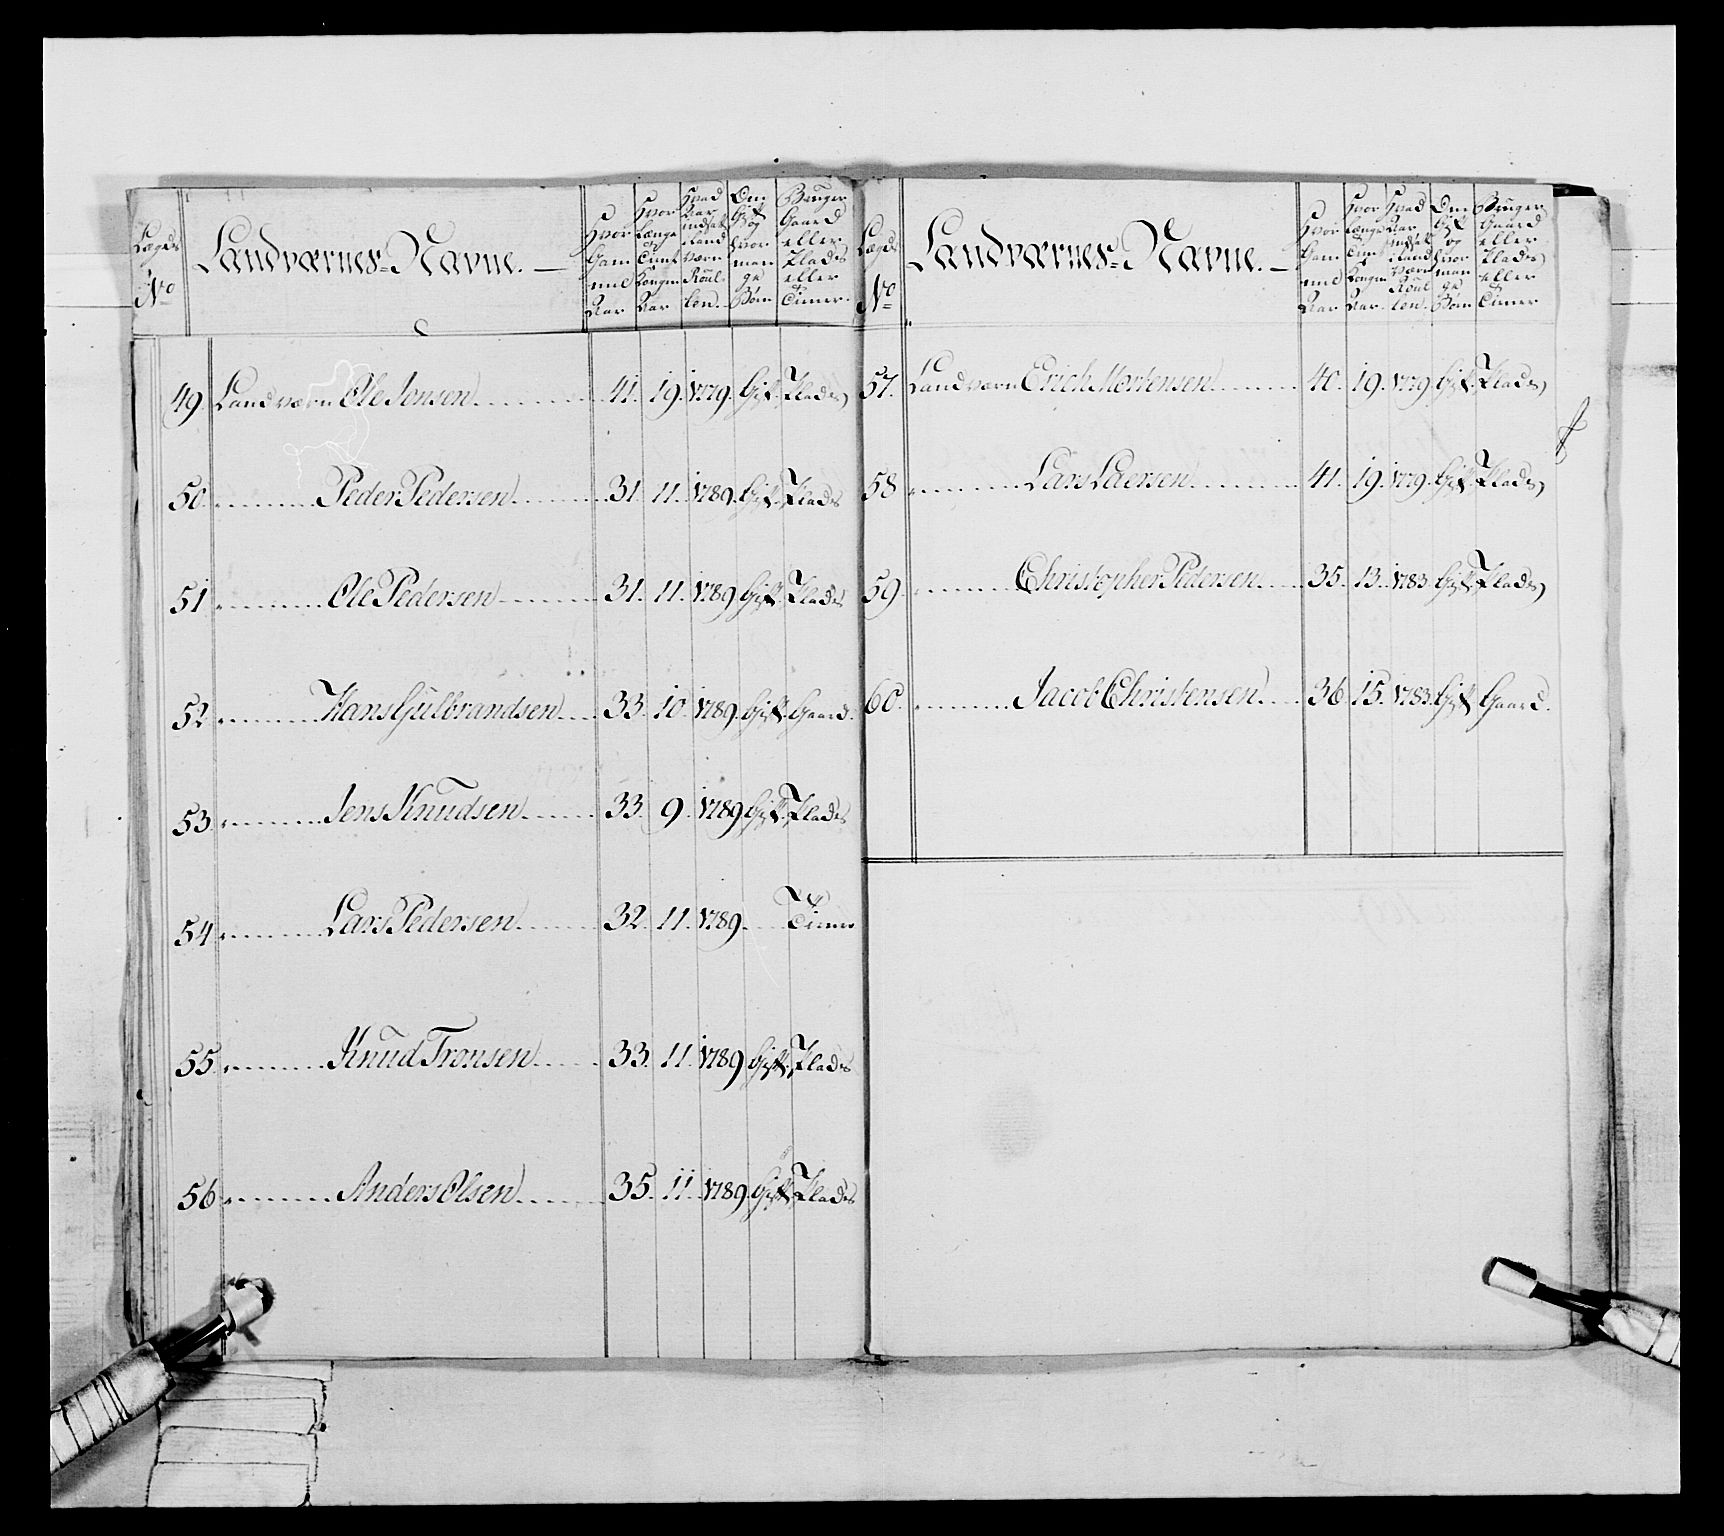 Lægds No
Landværnes Navne.
Hvor Gam mel Aar
Hvor Længe tient Kongen Aar
Hvad Aar indsat i Land værn Roul len.
Om Gift og hvor man ge Børn
Bruger Gaard eller Plads eller Tiener.
49. Landværn Ole Jonsen 41. 19. 1779. Gift. Plads
50. Peder Pedersen 31. 11. 1789. Gift. Plads
51. Ole Pedersen 31. 11. 1789. Gift. Plads
52. Hans Gulbrandsen 33. 10. 1789. Gift. Gaard.
53. Jens Knudsen 33. 9. 1789 Gift. Plads
54. Lars Pedersen 32. 11. 1789. Tiener
55. Knud Tronsen 33. 11. 1789 Gift. Plads
56. Anders Olsen 35. 11. 1789. Gift. Plads
Lægds No
Landværnes Navne.
Hvor Gam mel Aar
Hvor Længe tient Kongen Aar.
Hvad Aar indsat i Land Værn Roul len.
Om Gift og hvor man ge Børn
Bruger Gaard eller Plads eller Tiener
57. Landværn Erich Mortensen 40. 19. 1779. Gift. Plads
58 Lars Laersen 41. 19. 1779. Gift. Plads
59. Christopher Pedersen 35. 13. 1783. Gift. Plads
60. Jacob Christensen 36. 15. 1783. Gift Gaard.